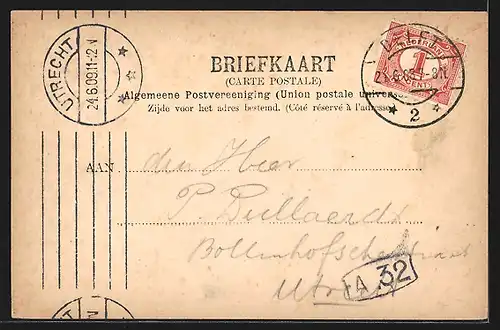 UTRECHT
24.6.09.11-12 V
BRIEFKAART
(CARTE POSTALE)
Algemeene Postvereeniging (Union postale universelle)
Zijde voor het adres bestemd. (Côté réservé à l'adresse)
NEDERLAND
1
CENT
2
AAN
den Heer
P.
Utrecht
A 32